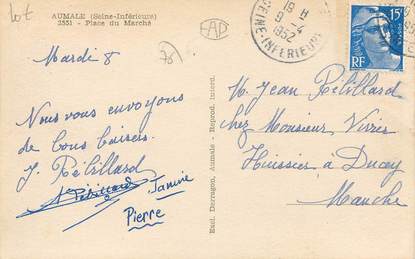 lot
AUMALE (Seine-Inférieure)
3551 - Place du Marché
Mardi 8
Nous vous envoyons
de bons baisers.
J. Pébillard
Janine
Pierre
Excl. Derragon, Aumale - Reprod. interd.
18 H
9-4
1952
SEINE-INFERIEURE
15F
RF
M. Jean Pébillard
chez Monsieur Vivier
Huissier à Ducey
Manche